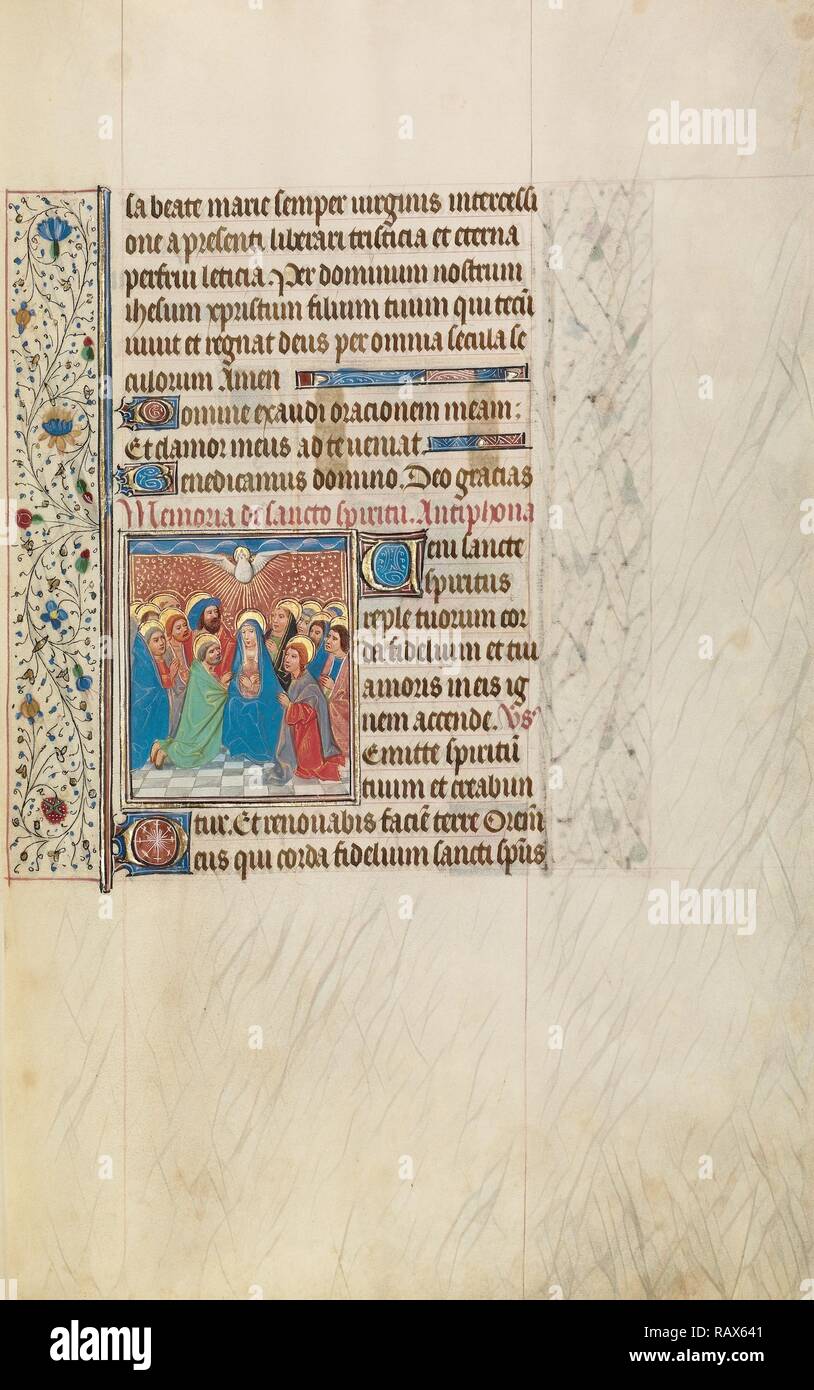 sa beate marie semper uirginis intercessi
one a presenti liberari tristicia et eterna
perfrui leticia. Per dominum nostrum
ihesum xpristum filium tuum qui tecū
uiuit et regnat deus per omnia secula se
culorum Amen
Domine exaudi oracionem meam:
Et clamor meus ad te ueniat.
Benedicamus domino. Deo gracias
Memoria de sancto spiritu. Antiphona
Ueni sancte
spiritus
reple tuorum cor
da fidelium et tui
amoris in eis ig
nem accende. Vs
Emitte spiritū
tuum et creabun
tur. Et renouabis faciē terre Orem9
Deus qui corda fidelium sancti sp̄us
alamy
alamy
alamy stock photo
Image ID: RAX641
www.alamy.com